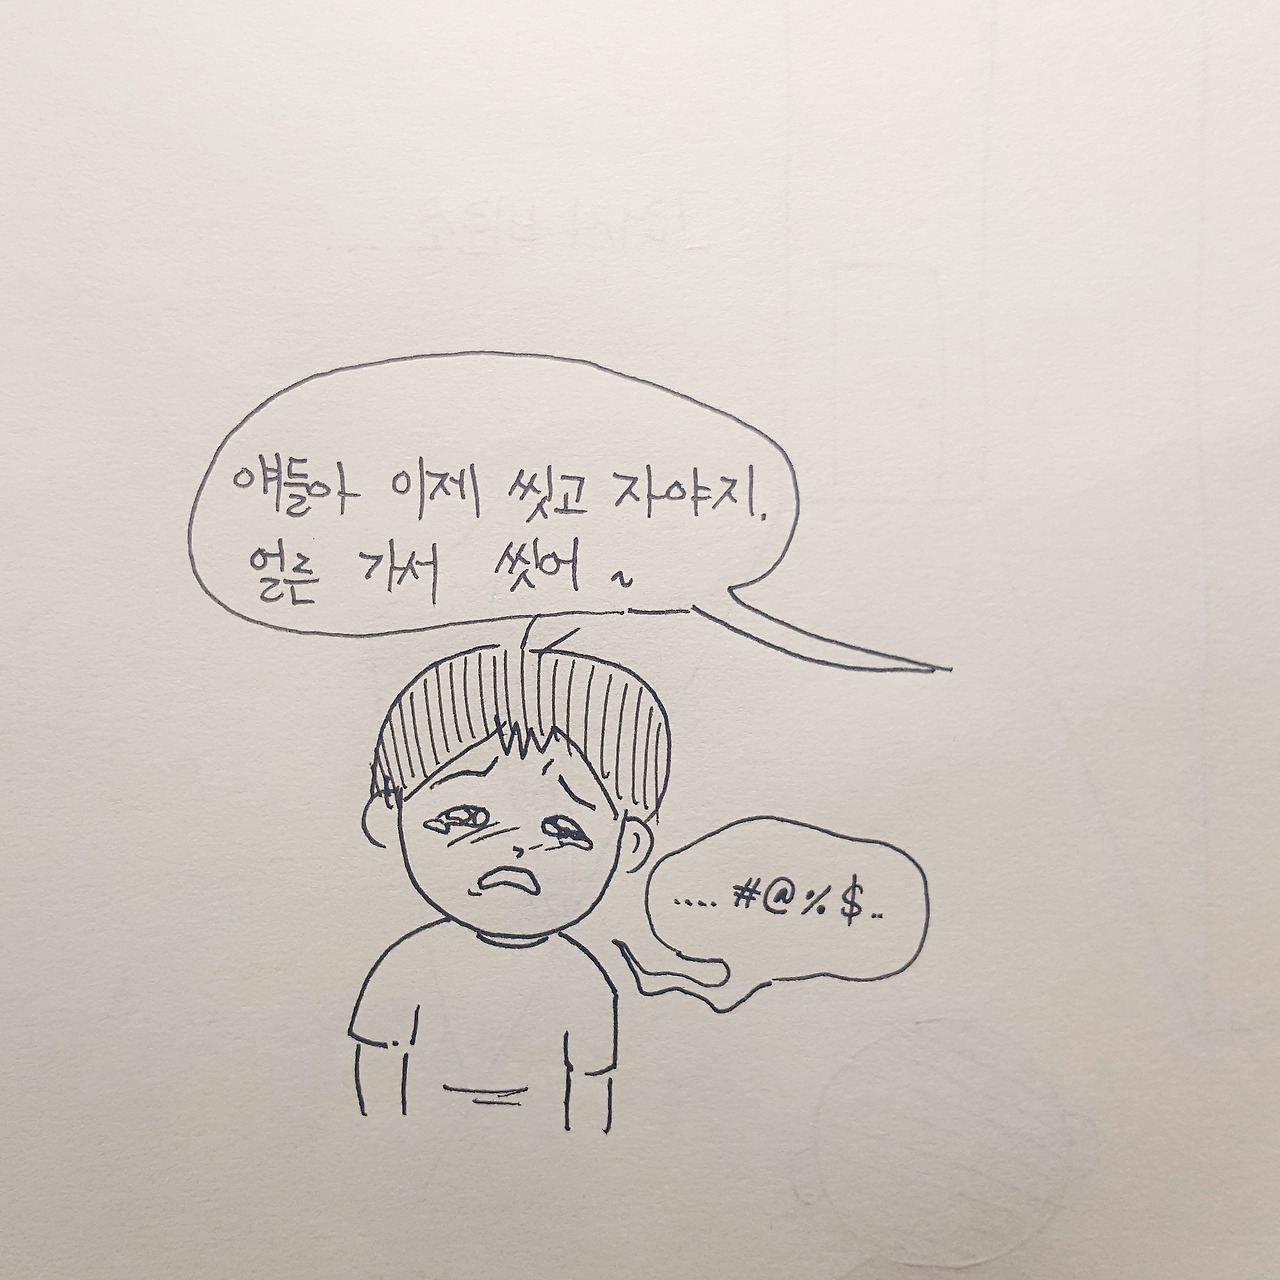 얘들아 이제 씻고 자야지.
얼른 가서 씻어 ~
.... #@%$..